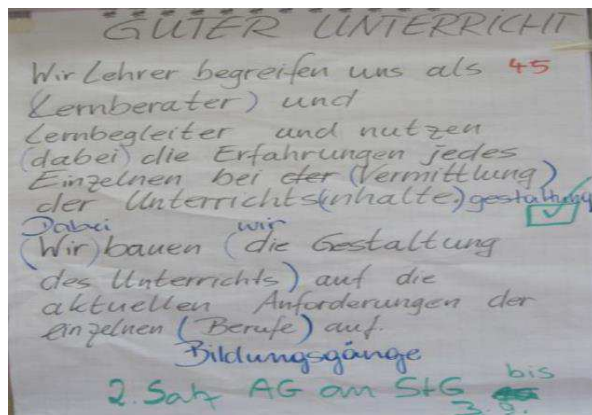 GUTER UNTERRICHT
Wir Lehrer begreifen uns als 45
(Lernberater) und
Lernbegleiter und nutzen
(dabei) die Erfahrungen jedes
Einzelnen bei der (Vermittlung)
der Unterrichts(inhalte.) gestaltung
Dabei wir
(Wir) bauen (die Gestaltung
des Unterrichts) auf die
aktuellen Anforderungen der
einzelnen (Berufe) auf.
Bildungsgänge
bis
2. Satz AG am StG
3.9.